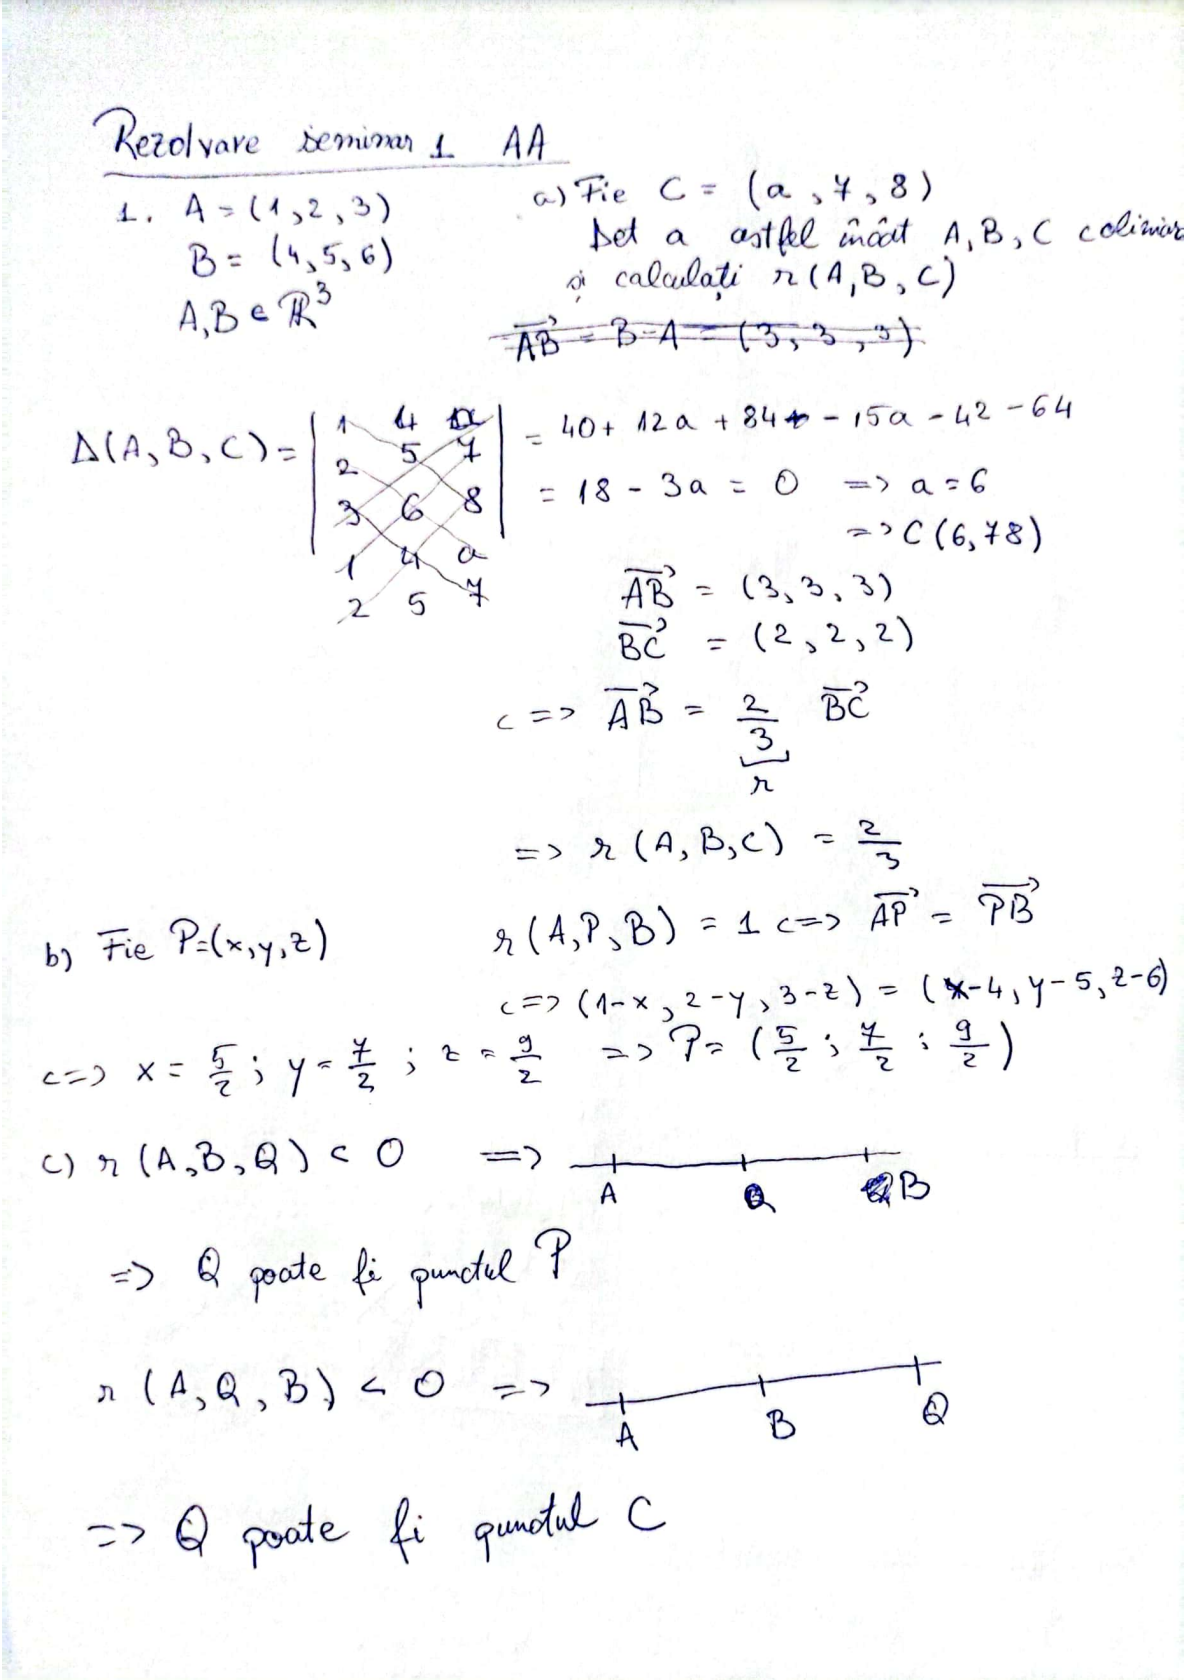 Rezolvare seminar 1 AA
1. A = (1,2,3)
B = (4,5,6)
A,B ∈ ℝ³
a) Fie C = (a,7,8)
Det a astfel încât A,B,C coliniar
și calculați r(A,B,C)
AB = B-A = (3,3,3)
Δ(A,B,C) = | 1 4 a | = 40 + 12a + 84 - 15a - 42 - 64
2 5 7
3 6 8 = 18 - 3a = 0 => a = 6
1 4 a => C(6,78)
2 5 7
AB = (3,3,3)
BC = (2,2,2)
<=> AB = 2/3 BC
r
=> r(A,B,C) = 2/3
b) Fie P=(x,y,z) r(A,P,B) = 1 <=> AP = PB
<=> (1-x, 2-y, 3-z) = (x-4, y-5, z-6)
<=> x = 5/2 ; y = 7/2 ; z = 9/2 => P = (5/2 ; 7/2 ; 9/2)
c) r(A,B,Q) < 0 =>
A Q B
=> Q poate fi punctul P
r(A,Q,B) < 0 =>
A B Q
=> Q poate fi punctul C